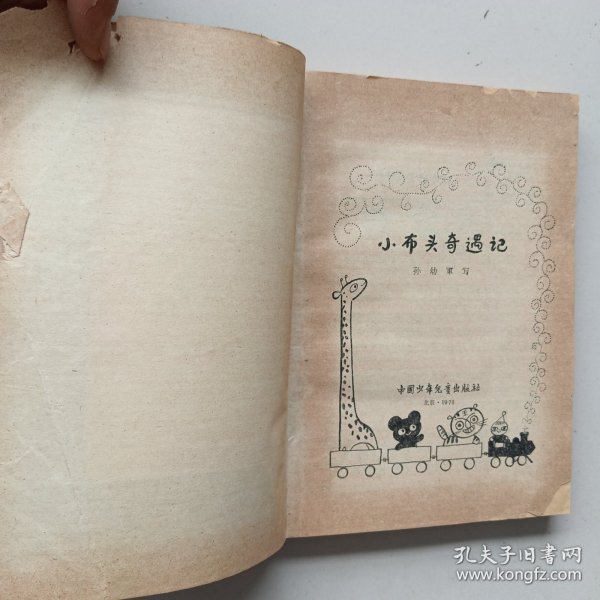 小布头奇遇记
孙幼军写
中国少年儿童出版社
北京·1978
孔夫子旧书网
www.kongfz.com